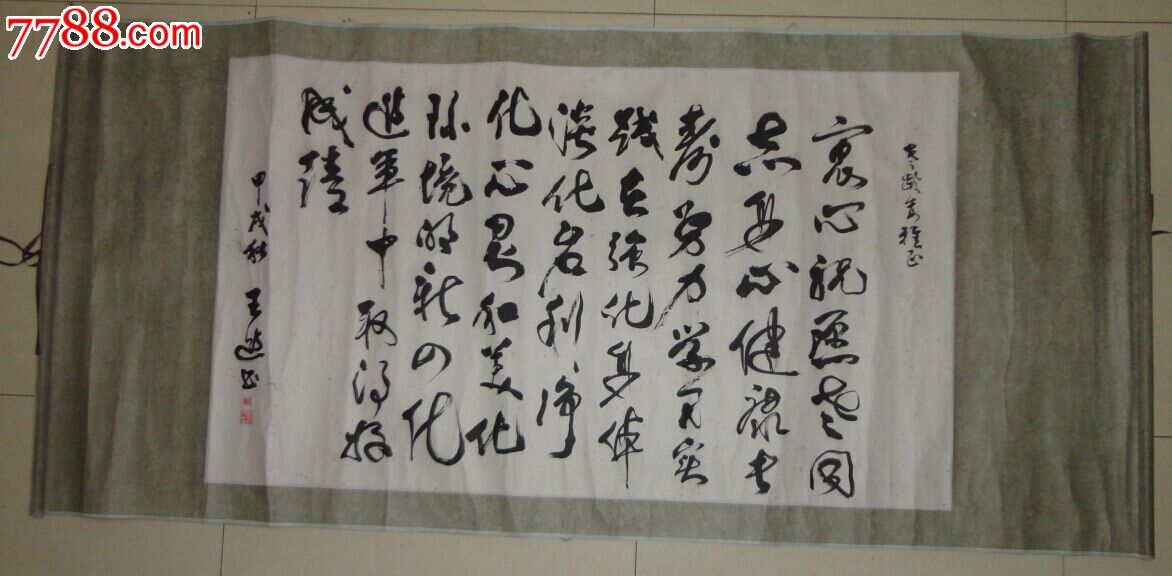 7788.com
老龄委雅正
衷心祝愿老同
志身心健康长
寿努力学习实
践在强化身体
淡化名利净
化心灵和美化
环境的新四化
進軍中取得好
成績
甲戌秋 王進书